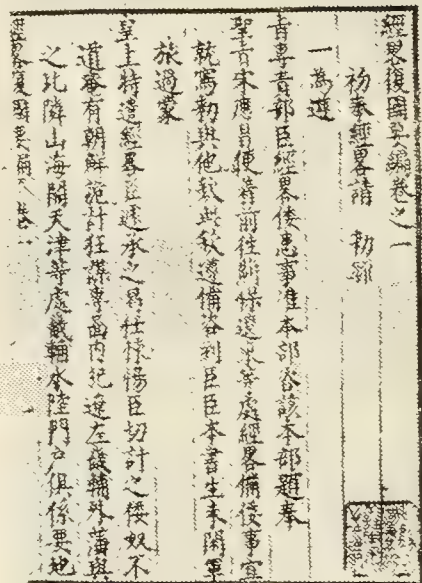 經畧復國要編卷之一
初奉經畧請 勅疏
一為遵
旨專責部臣經畧倭患事准本部咨該本部題奉
聖旨宋應昌便著前往保薊遼東等處經畧備倭事宜
就寫勅與他欽此欽遵備咨到臣臣本書生未閑軍
旅過蒙
皇上特遣經畧臣遽承之曷任悚惕臣切計之倭奴不
道審有朝鮮詭計狂謀專圖內犯遼左畿輔外藩與
之比隣山海關天津等處畿輔水陸門戶俱係要地
經畧復國要編 卷一